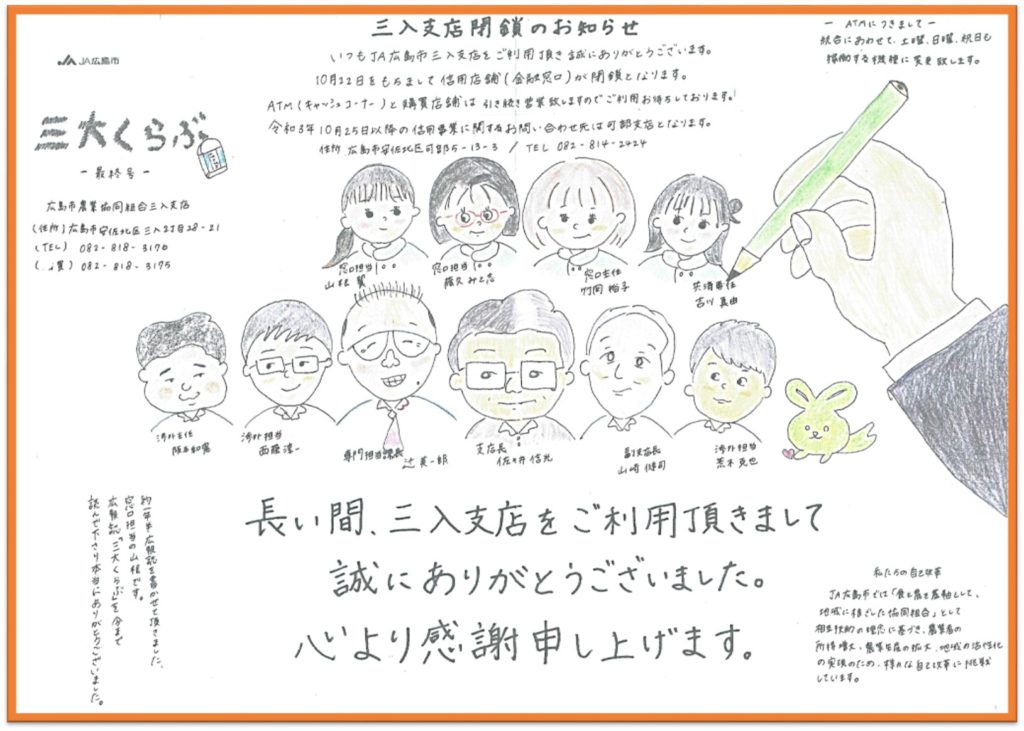 三入支店閉鎖のお知らせ
いつもJA広島市三入支店をご利用頂き誠にありがとうございます。
10月22日をもちまして信用店舗(金融窓口)が閉鎖となります。
ATM(キャッシュコーナー)と購買店舗は引き続き営業致しますのでご利用お待ちしております!
令和3年10月25日以降の信用事業に関するお問い合わせ先は可部支店となります。
住所 広島市安佐北区可部5-13-3 / TEL 082-814-2424
ー ATMにつきまして ー
統合にあわせて、土曜、日曜、祝日も
稼働する機種に変更致します。
JA広島市
三大くらぶ
- 最終号 -
広島市農業協同組合三入支店
(住所)広島市安佐北区三入2丁目28-21
(TEL) 082-818-3170
082-818-3175
窓口担当
山根
窓口担当
窓口主任
竹岡
吉川 真由
渉外主任
渉外担当
西藤 淳一
専門担当課長
辻 英一朗
支店長
佐々井 信光
副支店長
山崎 健司
渉外担当
荒木 克也
長い間、三入支店をご利用頂きまして
誠にありがとうございました。
心より感謝申し上げます。
約一年半広報誌を書かせて頂きました、
窓口担当の山根です。
広報誌「三大くらぶ」を今まで
読んで下さり本当にありがとうございました。
私たちの自己改革
JA広島市では「食と農を基軸として、
地域に根ざした協同組合」として
相互扶助の理念に基づき、農業者の
所得増大、農業生産の拡大、地域の活性化
の実現のため、様々な自己改革に挑戦
しています。